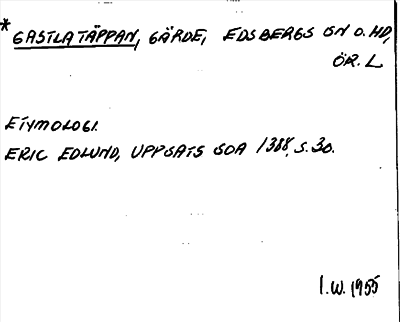 * GASTLATÄPPAN, GÄRDE, EDSBERGS SN O. HD,
ÖR. L
ETYMOLOGI.
ERIC EDLUND, UPPSATS SOA 1388, S. 30.
I.W. 1955